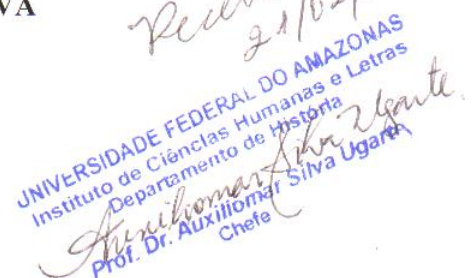 VA
21/02/
UNIVERSIDADE FEDERAL DO AMAZONAS
Instituto de Ciências Humanas e Letras
Departamento de História
Auxiliomar Silva Ugarte
Prof. Dr. Auxiliomar Silva Ugarte
Chefe